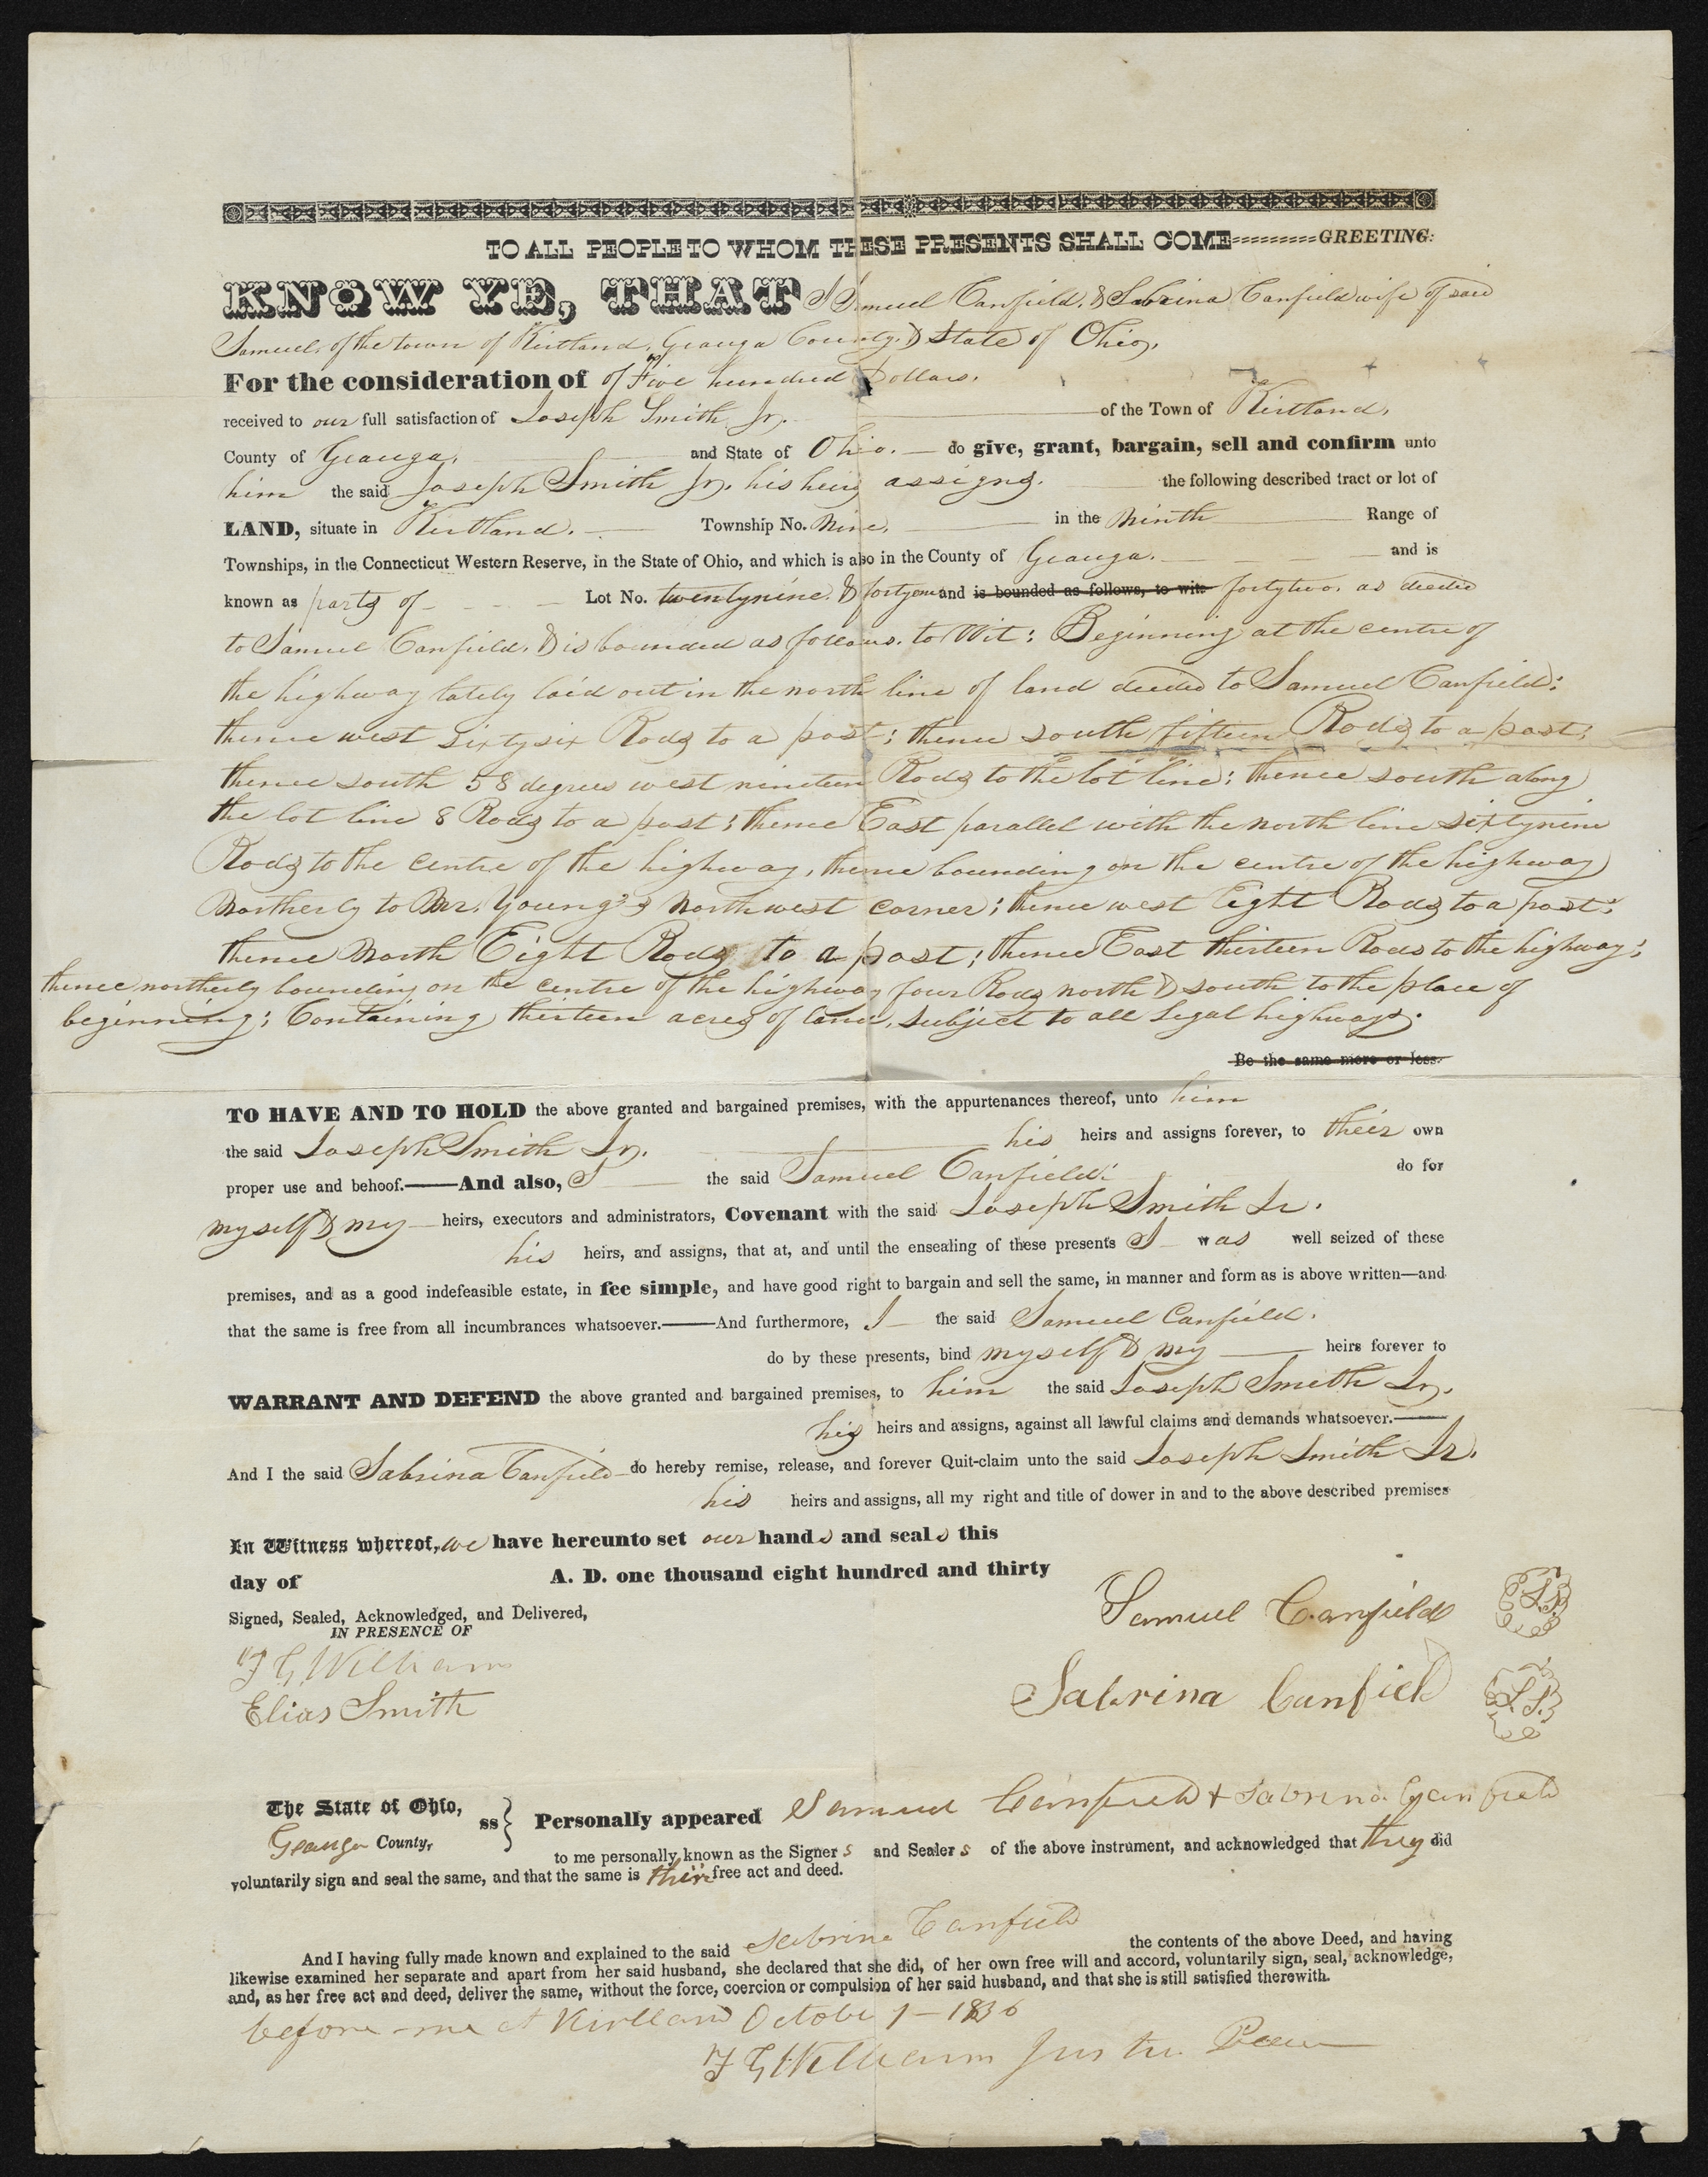 TO ALL PEOPLE TO WHOM THESE PRESENTS SHALL COME=========GREETING:
KNOW YE, THAT I Samuel Canfield, & Sabrina Canfield wife of said
Samuel, of the town of Kirtland, Geauga County, & State of Ohio,
For the consideration of of Five hundred Dollars.
received to our full satisfaction of Joseph Smith Jr. of the Town of Kirtland,
County of Geauga, and State of Ohio. do give, grant, bargain, sell and confirm unto
him the said Joseph Smith Jr. his heirs assigns. the following described tract or lot of
LAND, situate in Kirtland. Township No. Nine, in the Ninth Range of
Townships, in the Connecticut Western Reserve, in the State of Ohio, and which is also in the County of Geauga. and is
known as parts of Lot No. twentynine. & fortyone and is bounded as follows, to wit: fortytwo. as deeded
to Samuel Canfield, & is bounded as follows. to Wit: Beginning at the centre of
the highway lately laid out in the north line of land deeded to Samuel Canfield:
thence west sixtysix Rods to a post; thence south fifteen Rods to a post;
thence south 58 degrees west nineteen Rods to the lot line; thence south along
the lot line 8 Rods to a post; thence East parallel with the north line sixtynine
Rods to the centre of the highway, thence bounding on the centre of the highway
Northerly to Mr. Young's Northwest corner; thence west Eight Rods to a post;
thence North Eight Rods to a post; thence East thirteen Rods to the highway;
thence northerly bounding on the centre of the highway four Rods north & south to the place of
beginning; Containing thirteen acres of land, subject to all legal highways.
Be the same more or less.
TO HAVE AND TO HOLD the above granted and bargained premises, with the appurtenances thereof, unto him
the said Joseph Smith Jr. his heirs and assigns forever, to their own
proper use and behoof.——And also, I the said Samuel Canfield: do for
myself & my heirs, executors and administrators, Covenant with the said Joseph Smith Jr.
his heirs, and assigns, that at, and until the ensealing of these presents I was well seized of these
premises, and as a good indefeasible estate, in fee simple, and have good right to bargain and sell the same, in manner and form as is above written—and
that the same is free from all incumbrances whatsoever.——And furthermore, I the said Samuel Canfield.
do by these presents, bind myself & my heirs forever to
WARRANT AND DEFEND the above granted and bargained premises, to him the said Joseph Smith Jr.
his heirs and assigns, against all lawful claims and demands whatsoever.——
And I the said Sabrina Canfield do hereby remise, release, and forever Quit-claim unto the said Joseph Smith Jr.
his heirs and assigns, all my right and title of dower in and to the above described premises
In Witness whereof, we have hereunto set our hands and seals this
day of A. D. one thousand eight hundred and thirty
Signed, Sealed, Acknowledged, and Delivered,
IN PRESENCE OF
Samuel Canfield L.S.
F G Williams
Sabrina Canfield L.S.
Elias Smith
The State of Ohio, ss } Personally appeared Samuel Canfield & Sabrina Canfield
Geauga County, to me personally known as the Signers and Sealers of the above instrument, and acknowledged that they did
voluntarily sign and seal the same, and that the same is their free act and deed.
And I having fully made known and explained to the said Sabrina Canfield the contents of the above Deed, and having
likewise examined her separate and apart from her said husband, she declared that she did, of her own free will and accord, voluntarily sign, seal, acknowledge,
and, as her free act and deed, deliver the same, without the force, coercion or compulsion of her said husband, and that she is still satisfied therewith.
before me at Kirtland October 1 — 1836
F G Williams Justice Peace